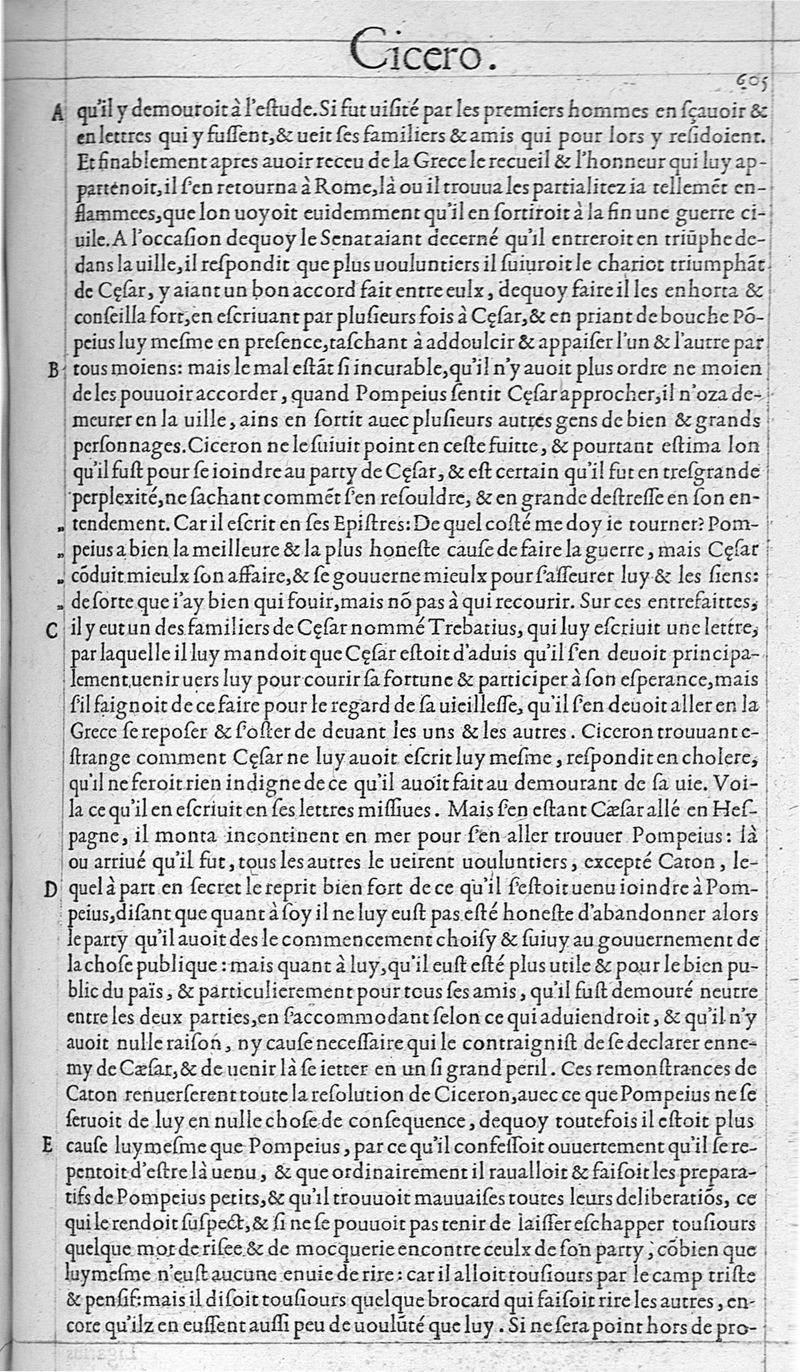 Cicero.
605
A qu'il y demouroit à l'eſtude. Si fut uiſité par les premiers hommes en ſçauoir &
en lettres qui y fuſſent, & ueit ſes familiers & amis qui pour lors y reſidoient.
Et finablement apres auoir receu de la Grece le recueil & l'honneur qui luy ap-
partenoit, il ſ'en retourna à Rome, là ou il trouua les partialitez ia tellemẽt en-
flammees, que lon uoyoit euidemment qu'il en ſortiroit à la fin une guerre ci-
uile. A l'occaſion dequoy le Senat aiant decerné qu'il entreroit en triũphe de-
dans la uille, il reſpondit que plus uouluntiers il ſuiuroit le chariot triumphãt
de Cęſar, y aiant un bon accord fait entre eulx, dequoy faire il les enhorta &
conſeilla fort, en eſcriuant par pluſieurs fois à Cęſar, & en priant de bouche Põ-
peius luy meſme en preſence, taſchant à addoulcir & appaiſer l'un & l'autre par
B tous moiens: mais le mal eſtãt ſi incurable, qu'il n'y auoit plus ordre ne moien
de les pouuoir accorder, quand Pompeius ſentit Cęſar approcher, il n'oza de-
meurer en la uille, ains en ſortit auec pluſieurs autres gens de bien & grands
perſonnages. Ciceron ne le ſuiuit point en ceſte fuitte, & pourtant eſtima lon
qu'il fuſt pour ſe ioindre au party de Cęſar, & eſt certain qu'il fut en treſgrande
perplexité, ne ſachant commẽt ſ'en reſouldre, & en grande deſtreſſe en ſon en-
„ tendement. Car il eſcrit en ſes Epiſtres: De quel coſté me doy ie tourner? Pom-
„ peius a bien la meilleure & la plus honeſte cauſe de faire la guerre, mais Cęſar
„ cõduit mieulx ſon affaire, & ſe gouuerne mieulx pour ſ'aſſeurer luy & les ſiens:
„ de ſorte que i'ay bien qui fouir, mais nõ pas à qui recourir. Sur ces entrefaittes,
C il y eut un des familiers de Cęſar nommé Trebatius, qui luy eſcriuit une lettre,
par laquelle il luy mandoit que Cęſar eſtoit d'aduis qu'il ſ'en deuoit principa-
lement uenir uers luy pour courir ſa fortune & participer à ſon eſperance, mais
ſ'il faignoit de ce faire pour le regard de ſa uieilleſſe, qu'il ſ'en deuoit aller en la
Grece ſe repoſer & ſ'oſter de deuant les uns & les autres. Ciceron trouuant e-
ſtrange comment Cęſar ne luy auoit eſcrit luy meſme, reſpondit en cholere,
qu'il ne feroit rien indigne de ce qu'il auoit fait au demourant de ſa uie. Voi-
la ce qu'il en eſcriuit en ſes lettres miſſiues. Mais ſ'en eſtant Cæſar allé en Heſ-
pagne, il monta incontinent en mer pour ſ'en aller trouuer Pompeius: là
ou arriué qu'il fut, tous les autres le ueirent uouluntiers, excepté Caton, le-
D quel à part en ſecret le reprit bien fort de ce qu'il ſ'eſtoit uenu ioindre à Pom-
peius, diſant que quant à ſoy il ne luy euſt pas eſté honeſte d'abandonner alors
le party qu'il auoit des le commencement choiſy & ſuiuy au gouuernement de
la choſe publique: mais quant à luy, qu'il euſt eſté plus utile & pour le bien pu-
blic du païs, & particulierement pour tous ſes amis, qu'il fuſt demouré neutre
entre les deux parties, en ſ'accommodant ſelon ce qui aduiendroit, & qu'il n'y
auoit nulle raiſon, ny cauſe neceſſaire qui le contraigniſt de ſe declarer enne-
my de Cæſar, & de uenir là ſe ietter en un ſi grand peril. Ces remonſtrances de
Caton renuerſerent toute la reſolution de Ciceron, auec ce que Pompeius ne ſe
ſeruoit de luy en nulle choſe de conſequence, dequoy toutefois il eſtoit plus
E cauſe luymeſme que Pompeius, par ce qu'il confeſſoit ouuertement qu'il ſe re-
pentoit d'eſtre là uenu, & que ordinairement il raualloit & faiſoit les prepara-
tifs de Pompeius petits, & qu'il trouuoit mauuaiſes toutes leurs deliberatiõs, ce
qui le rendoit ſuſpect, & ſi ne ſe pouuoit pas tenir de laiſſer eſchapper touſiours
quelque mot de riſee & de mocquerie encontre ceulx de ſon party, cõbien que
luymeſme n'euſt aucune enuie de rire: car il alloit touſiours par le camp triſte
& penſif: mais il diſoit touſiours quelque brocard qui faiſoit rire les autres, en-
core qu'ilz en euſſent auſſi peu de uoulũté que luy. Si ne ſera point hors de pro-